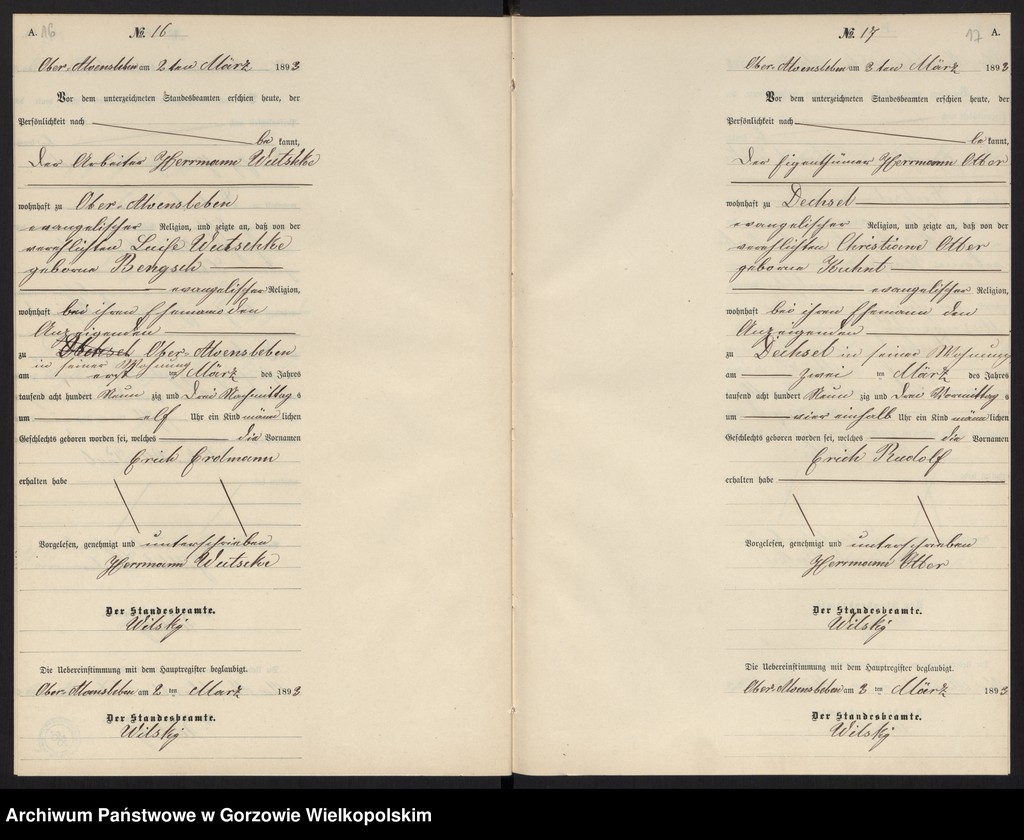 A. 16
№. 16
Ober-Alvensleben am 2 ten März 1893
Vor dem unterzeichneten Standesbeamten erschien heute, der
Persönlichkeit nach
be kannt,
der Arbeiter Herrmann Wutschke
wohnhaft zu Ober-Alvensleben
evangelischer Religion, und zeigte an, daß von der
verehlichten Luise Wutschke
geborne Bengsch
evangelischer Religion,
wohnhaft bei ihren Ehemann den
Anzeigenden
zu Ober-Alvensleben
in seiner Wohnung
am erst ten März des Jahres
tausend acht hundert Neun zig und Drei Nachmittag s
um elf Uhr ein Kind männ lichen
Geschlechts geboren worden sei, welches die Vornamen
Erich Erdmann
erhalten habe
Vorgelesen, genehmigt und unterschrieben
Herrmann Wutschke
Der Standesbeamte.
Wilsky
Die Uebereinstimmung mit dem Hauptregister beglaubigt.
Ober-Alvensleben am 2 ten März 1893
Der Standesbeamte.
Wilsky
№. 17
17 A.
Ober-Alvensleben am 3 ten März 1893
Vor dem unterzeichneten Standesbeamten erschien heute, der
Persönlichkeit nach
be kannt,
der Eigenthümer Herrmann Otter
wohnhaft zu Dechsel
evangelischer Religion, und zeigte an, daß von der
verehlichten Christiane Otter
geborne Kuhnt
evangelischer Religion,
wohnhaft bei ihren Ehemann den
Anzeigenden
zu Dechsel in seiner Wohnung
am zwei ten März des Jahres
tausend acht hundert Neun zig und Drei Vormittag s
um vier einhalb Uhr ein Kind männ lichen
Geschlechts geboren worden sei, welches die Vornamen
Erich Rudolf
erhalten habe
Vorgelesen, genehmigt und unterschrieben
Herrmann Otter
Der Standesbeamte.
Wilsky
Die Uebereinstimmung mit dem Hauptregister beglaubigt.
Ober-Alvensleben am 3 ten März 1893
Der Standesbeamte.
Wilsky
Archiwum Państwowe w Gorzowie Wielkopolskim